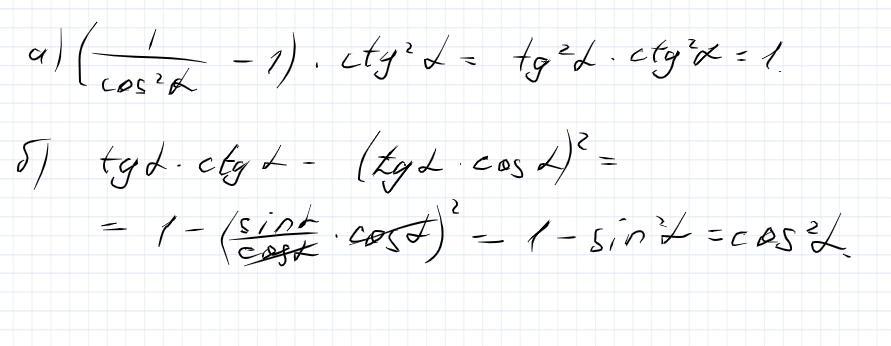 а) (1/cos²α − 1) · ctg²α = tg²α · ctg²α = 1.
б) tgα · ctgα − (tgα · cosα)² =
= 1 − (sinα/cosα · cosα)² = 1 − sin²α = cos²α.